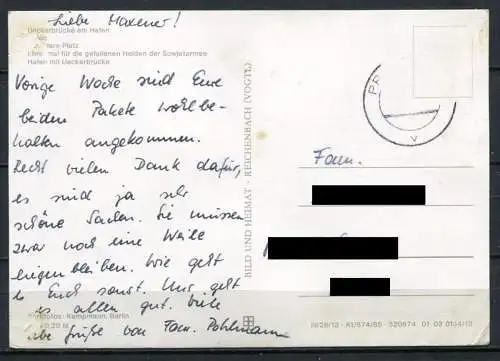 Liebe Maxener!
Ueckerbrücke am Hafen
-Platz
mal für die gefallenen Helden der Sowjetarmee
Hafen mit Ueckerbrücke
Vorige Woche sind Eure
beiden Pakete wohlbe-
halten angekommen.
Recht vielen Dank dafür,
es sind ja sehr
schöne Sachen. Sie müssen
zwar noch eine Weile
liegenbleiben. Wie geht
es Euch sonst. Uns geht
es allen gut. Viele
liebe Grüße von Fam. Pohlmann
fotos: Kempmann, Berlin
0,20 M
BILD UND HEIMAT · REICHENBACH (VOGTL)
PR
V
Fam.
III/26/13 · A1/674/85 · 320674 01 03 01